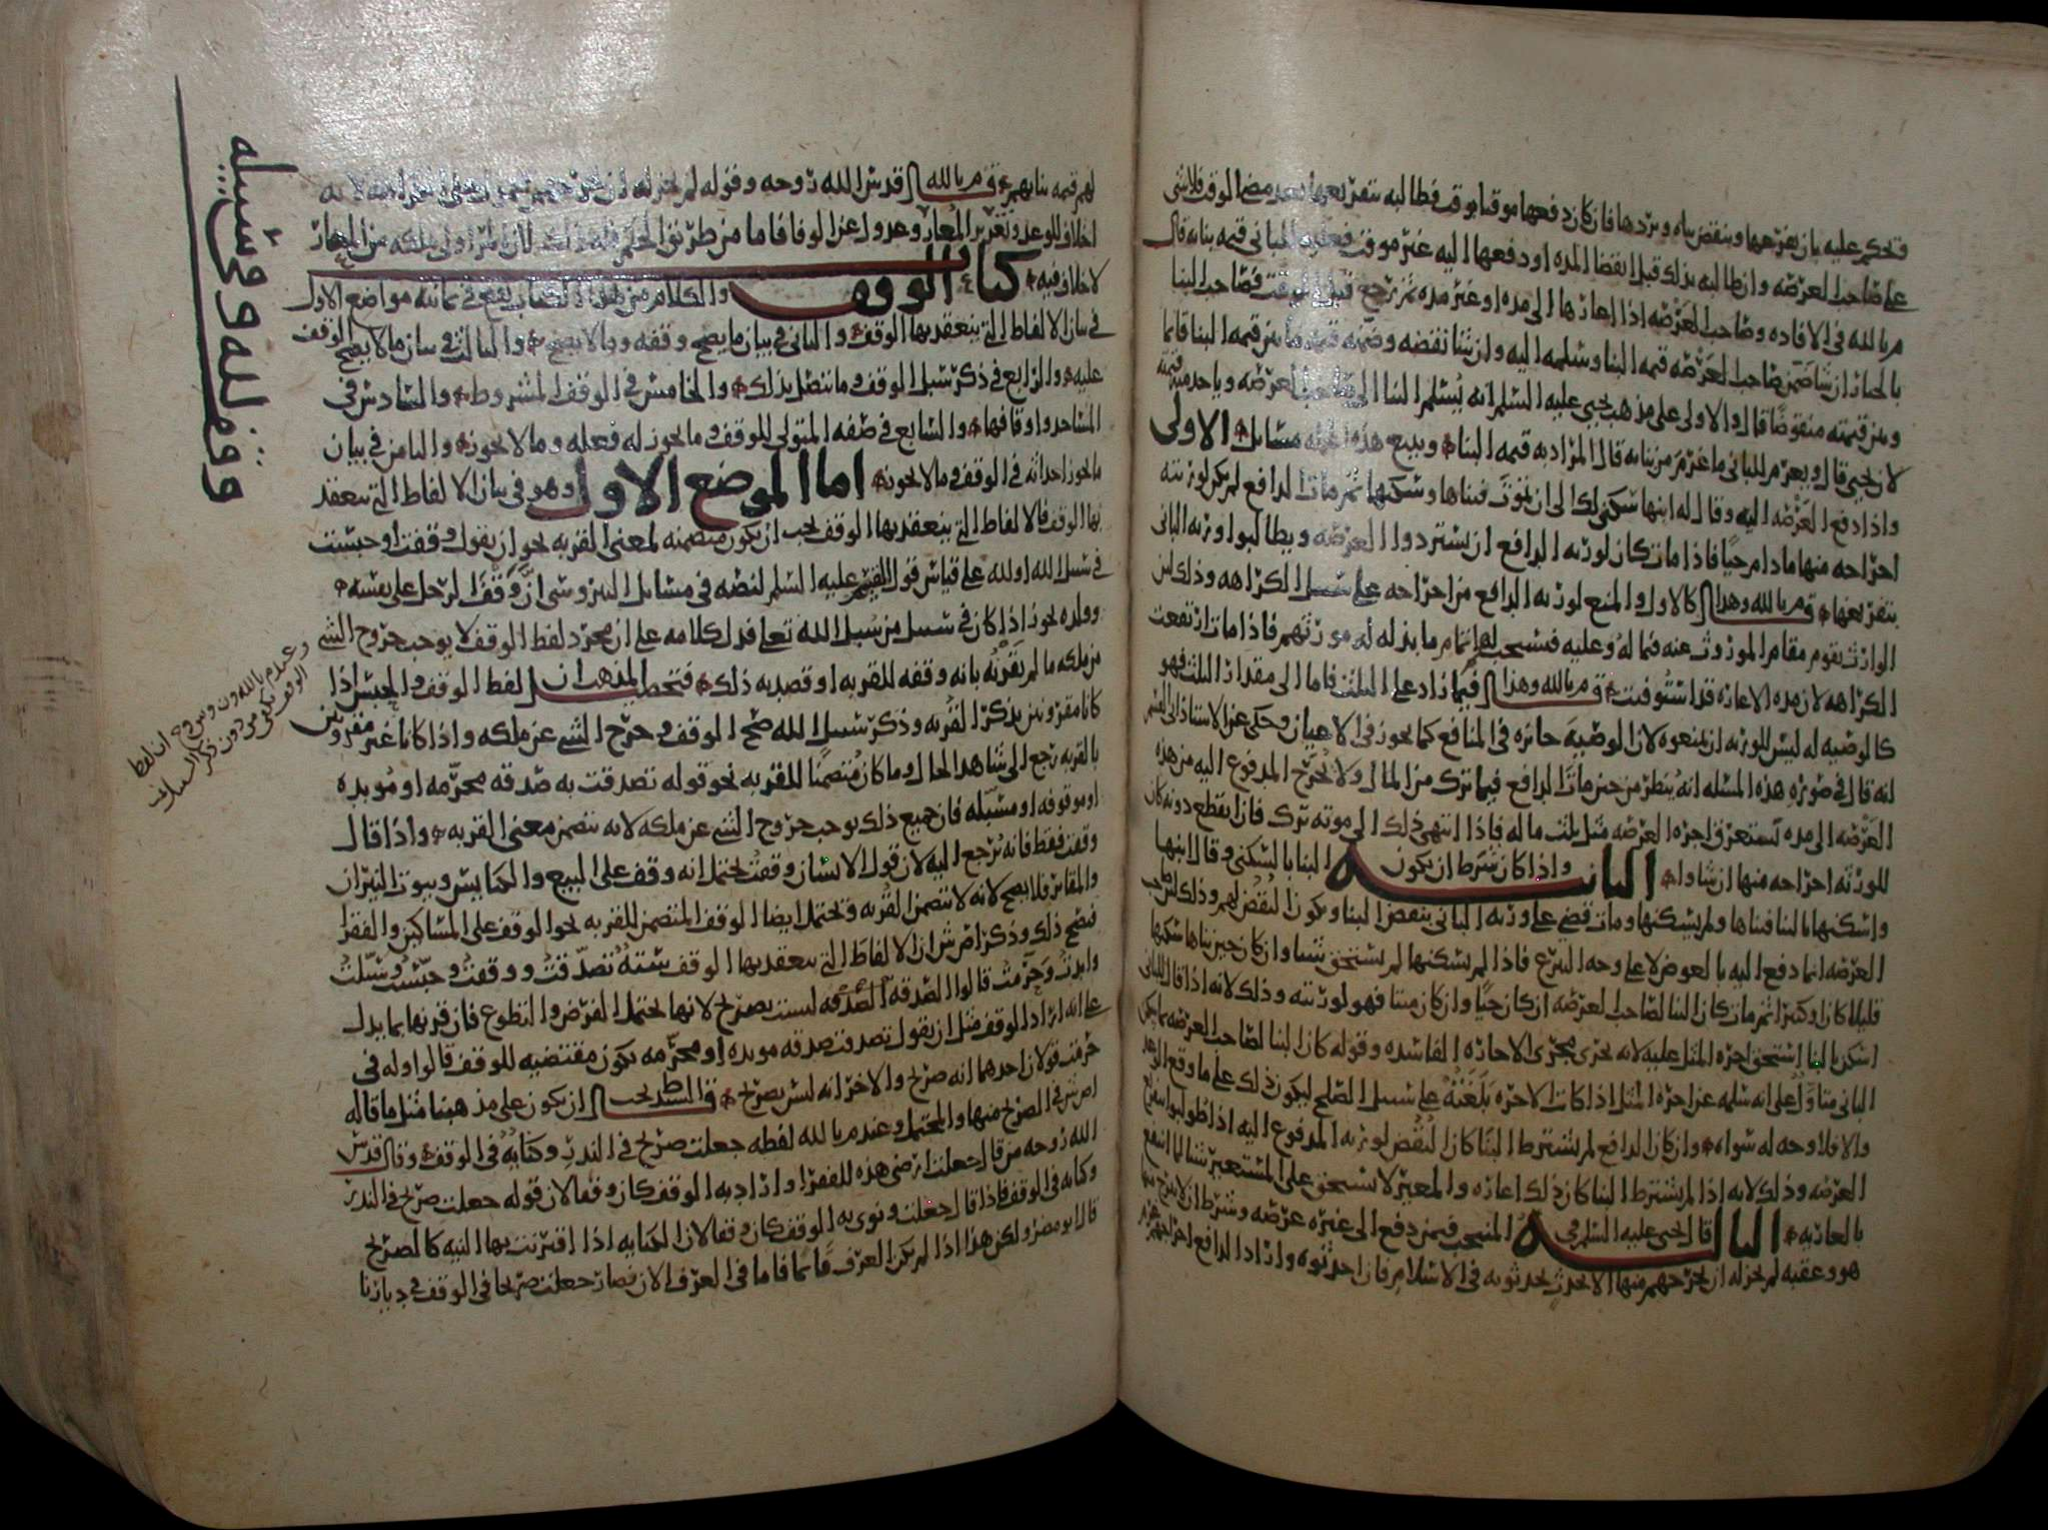 فتحكم عليه بان يفرغها وينقض بناه ويردها فان كان دفعها موقتا بوقت فطالبه بتفريغها بعد مضي الوقت فلا شي
على صاحب العرصه وان طالبه بذلك قبل انقضا المده او دفعها اليه غير موقت فعليه للباني قيمه بنايه قال
م بالله في الافاده وصاحب العرصه اذا اعارها الى مده او غير مده ثم رجع قبل الوقت فصاحب البنا
بالخيار ان شا ضمن صاحب العرصه قيمه البنا وسلمه اليه وان شا نقضه وضمنه ما بين قيمه البنا قايما
وبين قيمته منقوضا قال والاولى على مذهب يحيى عليه السلم انه يسلم البنا الى صاحب العرصه وياخد منه قيمته
لان يحيى قال ويغرم للباني ما غرم من بنايه قال المراد به قيمه البنا وبيع هذه الجمله مسايل الاولى
واذا دفع العرصه اليه وقال له ابنها سكنى لك الى ان تموت فبناها وسكنها ثم مات الدافع لم يكن لورثته
اخراجه منها ما دام حيا فاذا مات كان لورثه الدافع ان يستردوا العرصه ويطالبوا ورثه الباني
بتفريغها قم بالله وهذا كالاول والمنع لورثه الدافع من اخراجه على سبيل الكراهه وذلك لان
الوارث يقوم مقام الموروث عنه فيما له وعليه فيستحب لهم اتمام ما بذله له مورثهم فاذا مات ارتفعت
الكراهه لان مده الاعاره قد استوفيت قم بالله وهذا فيما زاد على الثلث فاما الى مقدار الثلث فهو
كالوصيه له ليس للورثه ان يمنعوه لان الوصيه جائزه في المنافع كما يجوز في الاعيان وحكى عن الاستاذ ابي القسم
انه قال في صوره هذه المسئله انه ينظر من حين مات الدافع فيما ترك من المال ولا يخرج المدفوع اليه من هذه
العرصه الى مده تستغرق اجره العرصه مثل ثلث ماله فاذا انتهى ذلك الى موته ترك فان انقطع دونه كان
للورثه اخراجه منها ان شاوا الثانيه واذا كان شرط ان يكون البنا بالسكنى وقال ابنها
واسكنها بالبنا فبناها ولم يسكنها ومات قضي على ورثه الباني بنقض البنا ويكون النقض لهم وذلك لان صاحب
العرصه انما دفع اليه بالعوض لا على وجه التبرع فاذا لم يسكنها لم يستحق شيا وان كان حين بناها سكنها
قليلا كان او كثيرا ثم مات كان البنا لصاحب العرصه ان كان حيا وان كان ميتا فهو لورثته وذلك لانه اذا قال للباني
اسكن بالبنا استحق اجره المثل عليه لانه يجري مجرى الاجاره الفاسده وقوله كان البنا لصاحب العرصه بما سكن
الباني متاول على انه سلمه عن اجره المثل اذا كانت الاجره بلغته على سبيل الصلح ليكون ذلك على ما وقع الوعد
والا فلا وجه له سواه وان كان الدافع لم يشترط البنا كان النقض لورثه المدفوع اليه اذا طولبوا بتفريغ
العرصه وذلك لانه اذا لم يشترط البنا كان ذلك اعاره والمعير لا يستحق على المستعير شيا لما انتفع
بالعاريه الثالثه قال يحيى عليه السلم في المنتخب فيمن دفع الى غيره عرصه وشرط ان لا يخرج منها
هو وعقبه لم يجز له ان يخرجهم منها الا لحدث يحدثونه في الاسلام فان احدثوه واراد الدافع اخراجهم غرم
لهم قيمه بنايهم قم بالله قدس الله روحه وقوله لم يجز له ان يخرجهم
اخلاف للوعد وتغرير المعار وعدول عن الوفا فاما من طريق الحكم فله ذلك
لا خلاف فيه
كتاب الوقف
والكلام من هذا الكتاب يقع في ثمانيه مواضع الاول
في بيان الالفاظ التي ينعقد بها الوقف والثاني في بيان ما يصح وقفه وما لا يصح والثالث في بيان ما لا يصح الوقف
عليه والرابع في ذكر سبل الوقف وما يتصل بذلك والخامس في الوقف المشروط والسادس في
المساجد واوقافها والسابع في صفه المتولي للوقف وما يجوز له فعله وما لا يجوز والثامن في بيان
ما يجوز احداثه في الوقف وما لا يجوز اما الموضع الاول وهو في بيان الالفاظ التي ينعقد
بها الوقف فالالفاظ التي ينعقد بها الوقف يجب ان يكون متضمنه لمعنى القربه نحو ان يقول وقفت او حبست
في سبيل الله او لله على قياس قول القسم عليه السلم لنصه في مسايل النيروسي ان وقف الرجل على نفسه
وولده يجوز اذا كان في سبيل من سبل الله تعلى فدل كلامه على ان مجرد لفظ الوقف لا يوجب خروج الشي
من ملكه ما لم يقرنه بانه وقفه للقربه او قصد به ذلك فتحصيل المذهب ان لفظ الوقف والحبس اذا
كانا مقرونين بذكر القربه وذكر سبيل الله صح الوقف وخرج الشي عن ملكه واذا كانا غير مقرونين
بالقربه رجع الى شاهد الحال وما كان متضمنا للقربه نحو قوله تصدقت به صدقه محرمه او موبده
او موقوفه او مسبله فان جميع ذلك يوجب خروج الشي عن ملكه لانه تتضمن معنى القربه واذا قال
وقفت فقط فانه يرجع اليه لان قول الانسان وقفت يحتمل انه وقف على البيع والكنايس وبيوت النيران
والمقابر فلا يصح لانه لا تتضمن القربه ويحتمل ايضا الوقف المتضمن للقربه نحو الوقف على المساكين والفقرا
فيصح ذلك وذكر اص ش ان الالفاظ التي ينعقد بها الوقف سته تصدقت ووقفت وحبست وسبلت
وابدت وحرمت قالوا الصدقه الصدقه ليست بصريح لانها يحتمل الفرض والتطوع فان قرنها بما يدل
على انه اراد الوقف مثل ان يقول تصدقت صدقه موبده او محرمه يكون مقتضيه للوقف قالوا وله في
حرمت قولان احدهما انه صريح والاخر انه ليس بصريح قال السيد يجب ان يكون على مذهبنا مثل ما قاله
اص ش في الصريح منها والمحتمل وعند م بالله لفظه جعلت صريح في النذر وكنايه في الوقف وقال قدس
الله روحه من قال جعلت ارضي هذه للفقرا واراد به الوقف كان وقفا لان قوله جعلت صريح في النذر
وكنايه في الوقف فاذا قال جعلت ونوى به الوقف كان وقفا لان الكنايه اذا اقترنت بها النيه كالصريح
قال ابو مضر ولكن هذا اذا لم يكن العرف قايما فاما في العرف الان فصار جعلت صريحا في الوقف في ديارنا
وقف لله وفي سبيله
وعند م بالله ون وس وح ان لفظ
الوقف يكفي من دون ذكر السبيل